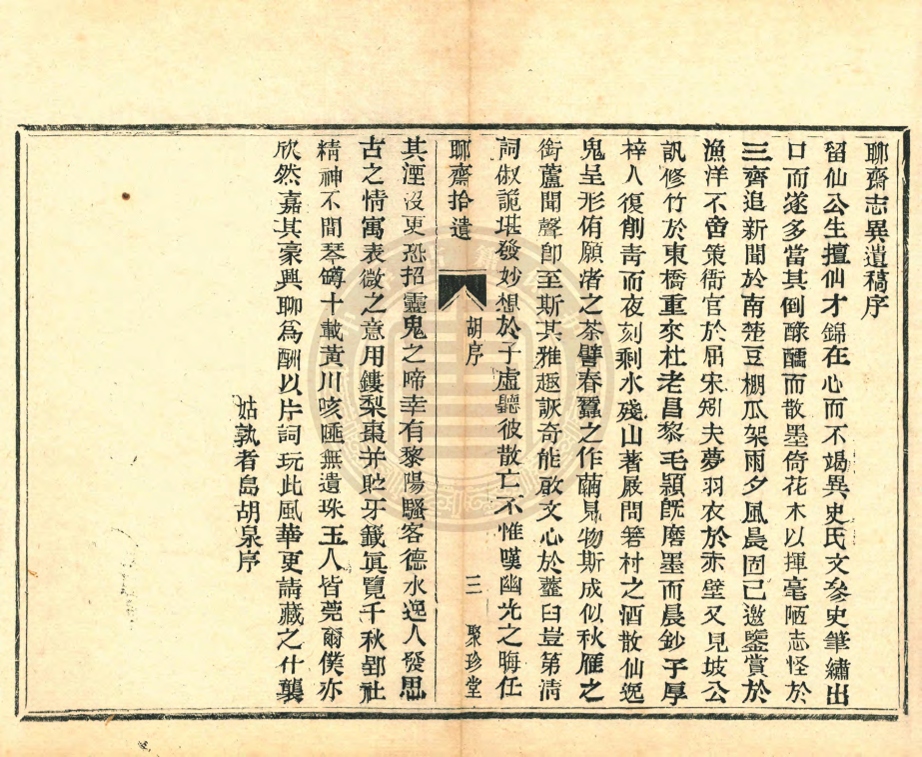 聊齋志異遺稿序
留仙公生擅仙才錦在心而不竭異史氏文參史筆繡出
口而遂多當其倒醁醽而散墨倚花木以揮毫陋志怪於
三齊追新聞於南楚豆棚瓜架雨夕風晨固已邀鑒賞於
漁洋不啻策衙官於屈宋矧夫夢羽衣於赤壁又見坡公
訊修竹於東橋重來杜老昌黎毛穎旣磨墨而晨鈔子厚
梓人復削靑而夜刻剩水殘山著屐問箬村之酒散仙逸
鬼呈形侑願渚之茶譬春蠶之作繭見物斯成似秋雁之
銜蘆聞聲卽至斯其雅趣訴奇能敵文心於虀臼豈第淸
詞俶詭堪發妙想於子虛聽彼散亡不惟嘆幽光之晦任
聊齋拾遺
胡序
三
聚珍堂
其湮沒更恐招靈鬼之啼幸有黎陽騷客德水逸人發思
古之情寓表微之意用鏤梨棗并貯牙籤眞覽千秋鄴社
精神不間琴罇十載黃川咳唾無遺珠玉人皆莞爾僕亦
欣然嘉其豪興聊爲酬以片詞玩此風華更請藏之什襲
姑孰者島胡泉序